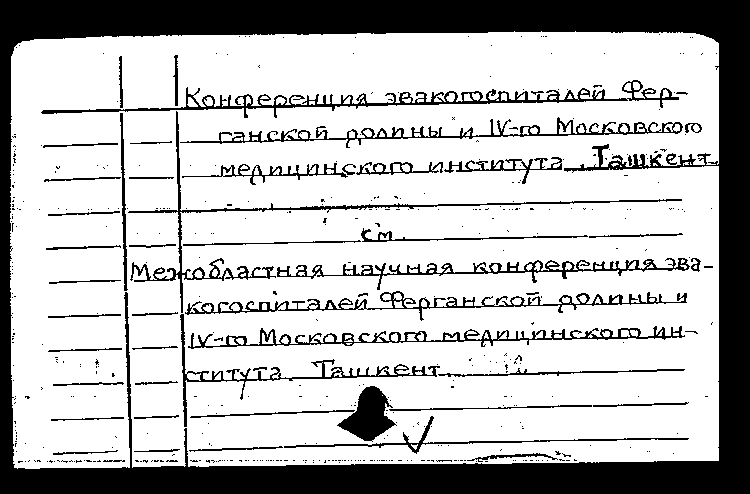 Конференция эвакогоспиталей Фер-
ганской долины и IV-го Московского
медицинского института. Ташкент.
см.
Межобластная научная конференция эва-
когоспиталей Ферганской долины и
IV-го Московского медицинского ин-
ститута. Ташкент.